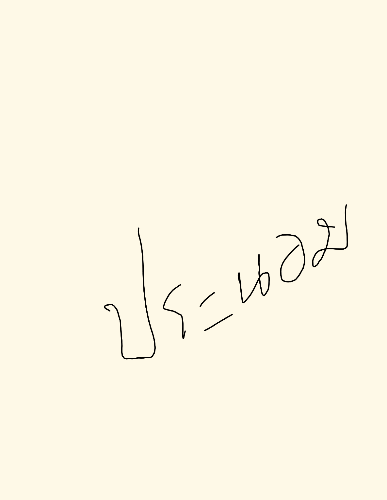 ประนอม